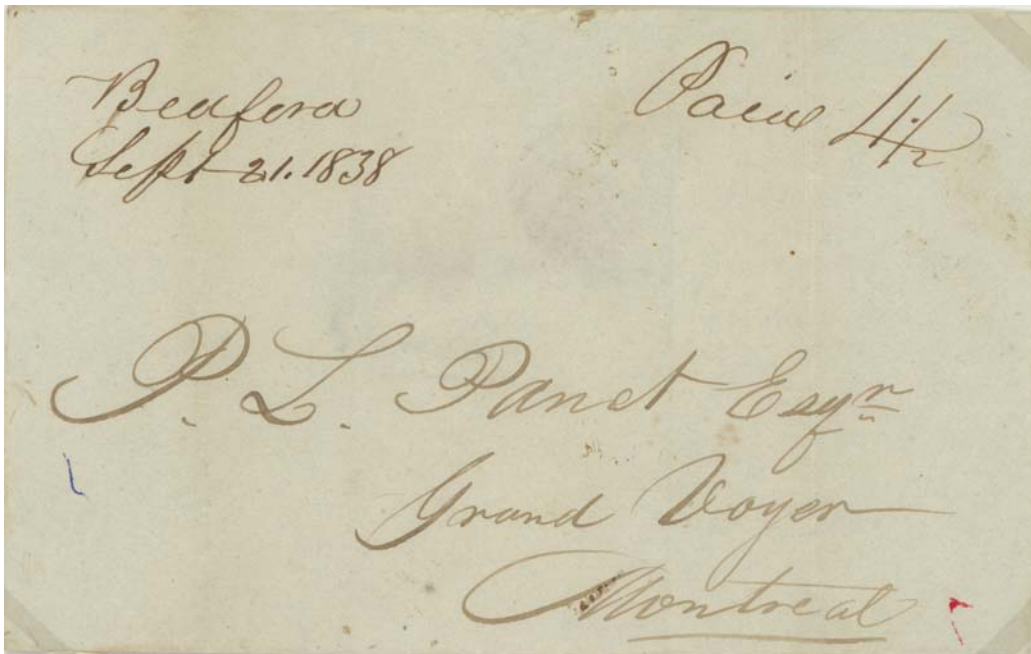 Bedford
Sept 21. 1838
Paid 4 1/2
P. L. Panet Esqr
Grand Voyer
Montreal